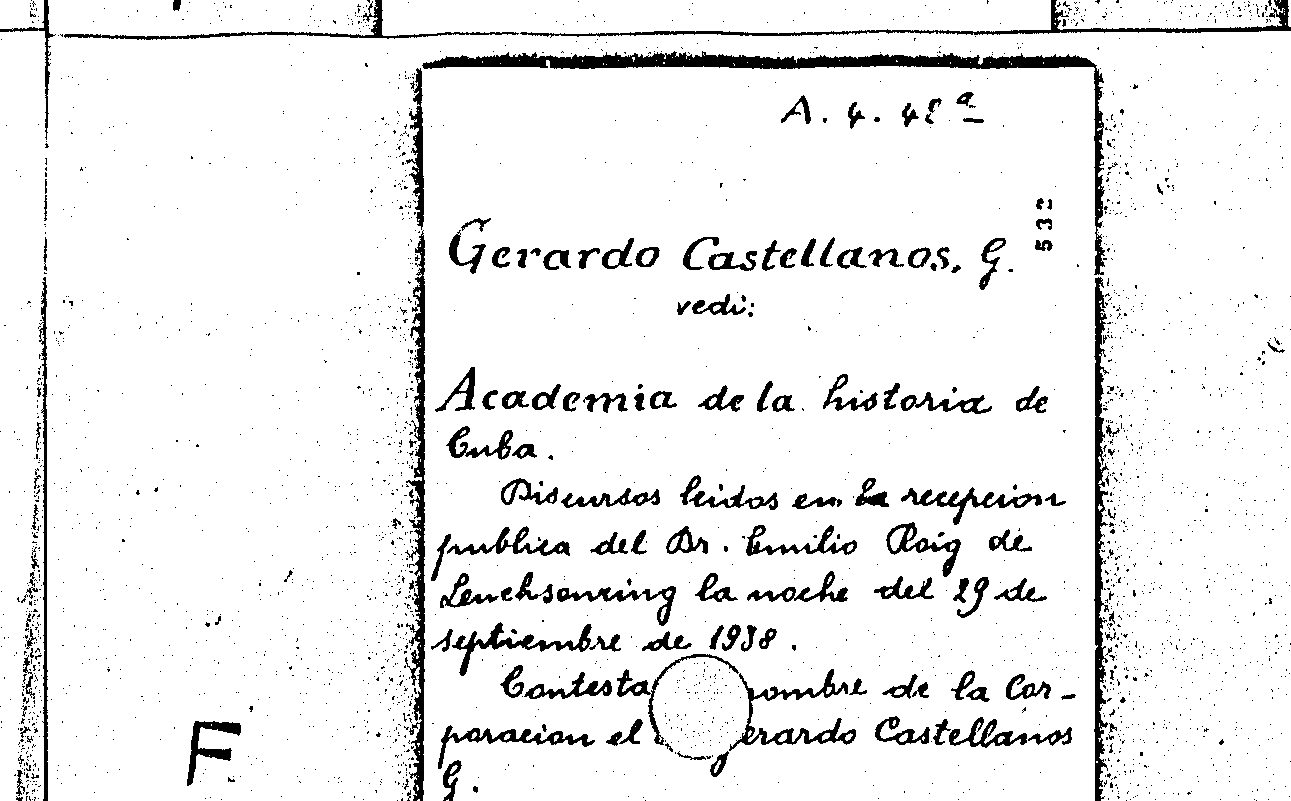 A. 4. 42ª
532
Gerardo Castellanos, G.
vedi:
Academia de la historia de
Cuba.
Discursos leidos en la recepcion
publica del Dr. Emilio Roig de
Leuchsenring la noche del 29 de
septiembre de 1938.
Contesta ombre de la Cor-
poracion el erardo Castellanos
G.
F